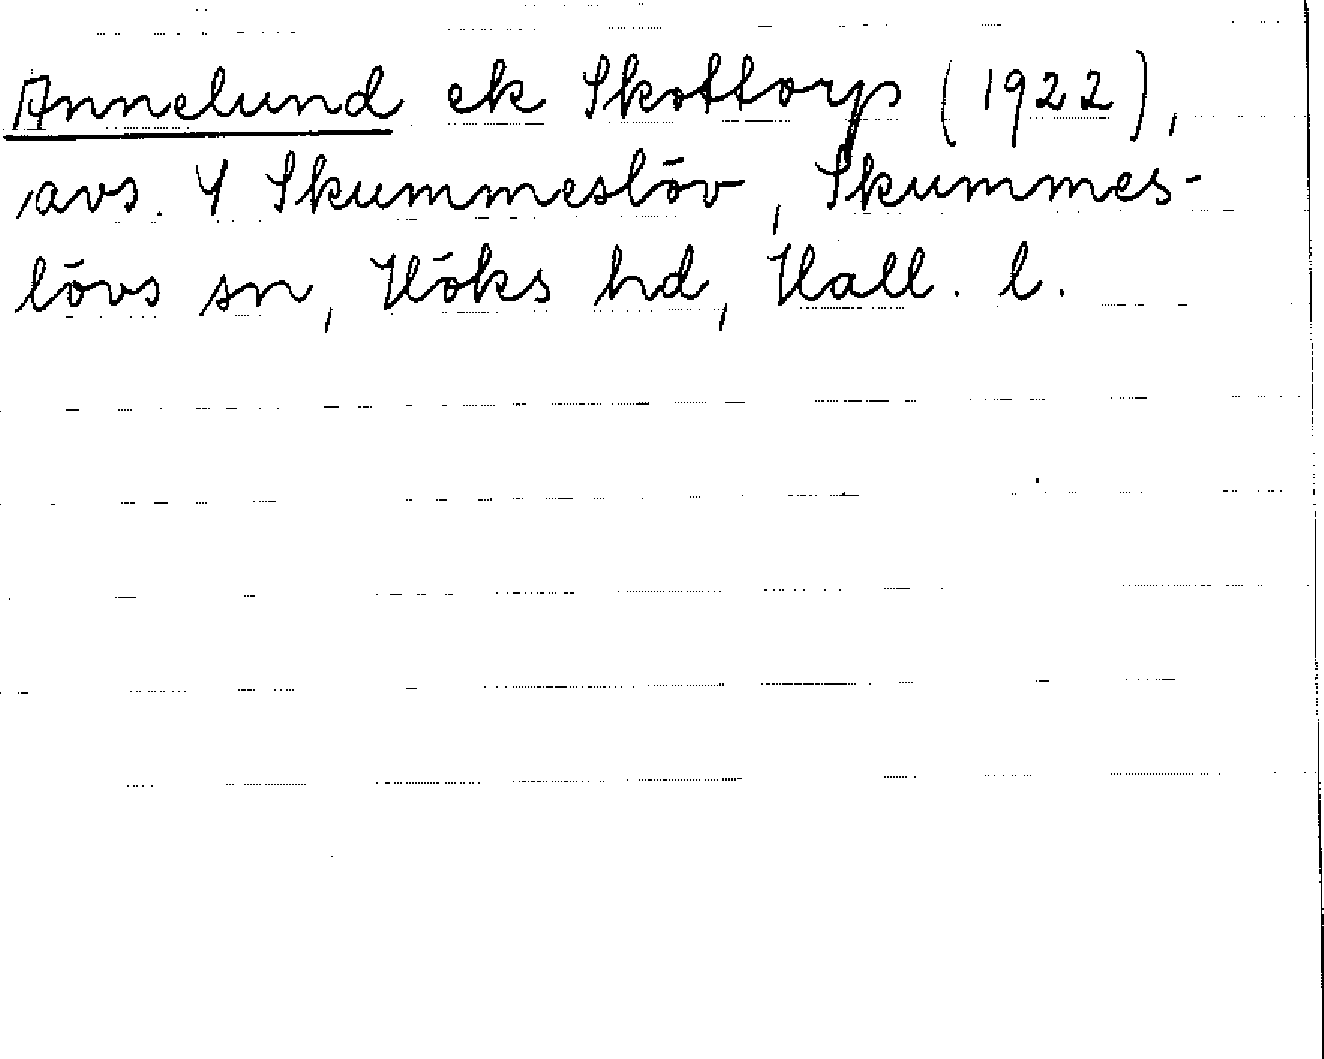 Annelund ek Skottorp (1922),
avs. 4 Skummeslöv, Skummes-
lövs sn, Höks hd, Hall. l.